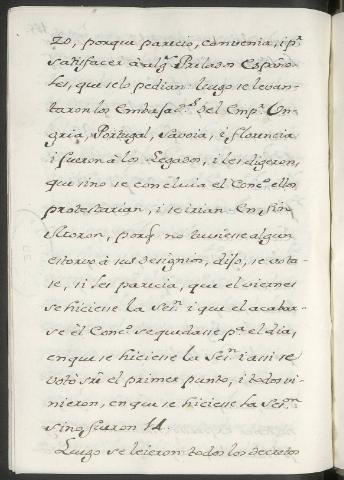 zo, porque parecio, convenia, i pª
satisfacer à alg.s Prelados Españo-
les, que selo pedian: luego se levan-
taron los Embaxad.es del Emp.r Un-
gria, Portugal, Savoia, i florencia
i fueron à los Legados, i les digeron,
que sino se concluia el Conc.o ellos
protestarian, i se irian. En fin
porq. no huviesse algun
estorvo à sus designios, dijo, se vota-
se, si les parecia, que el viernes
se hiciesse la Ses.n i que el acabar-
se el Conc.o se quedasse pª el dia,
en que se hiciesse la Ses.n i assi se
votò sre el primer punto, i todos vi-
nieron, en que se hiciesse la Ses.on
sino fueron 14.
Luego se leieron todos los decretos